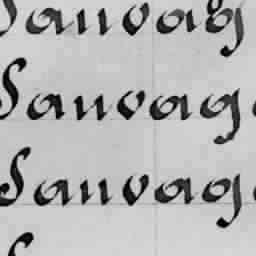 Sauvag
Sauvage
Sauvage